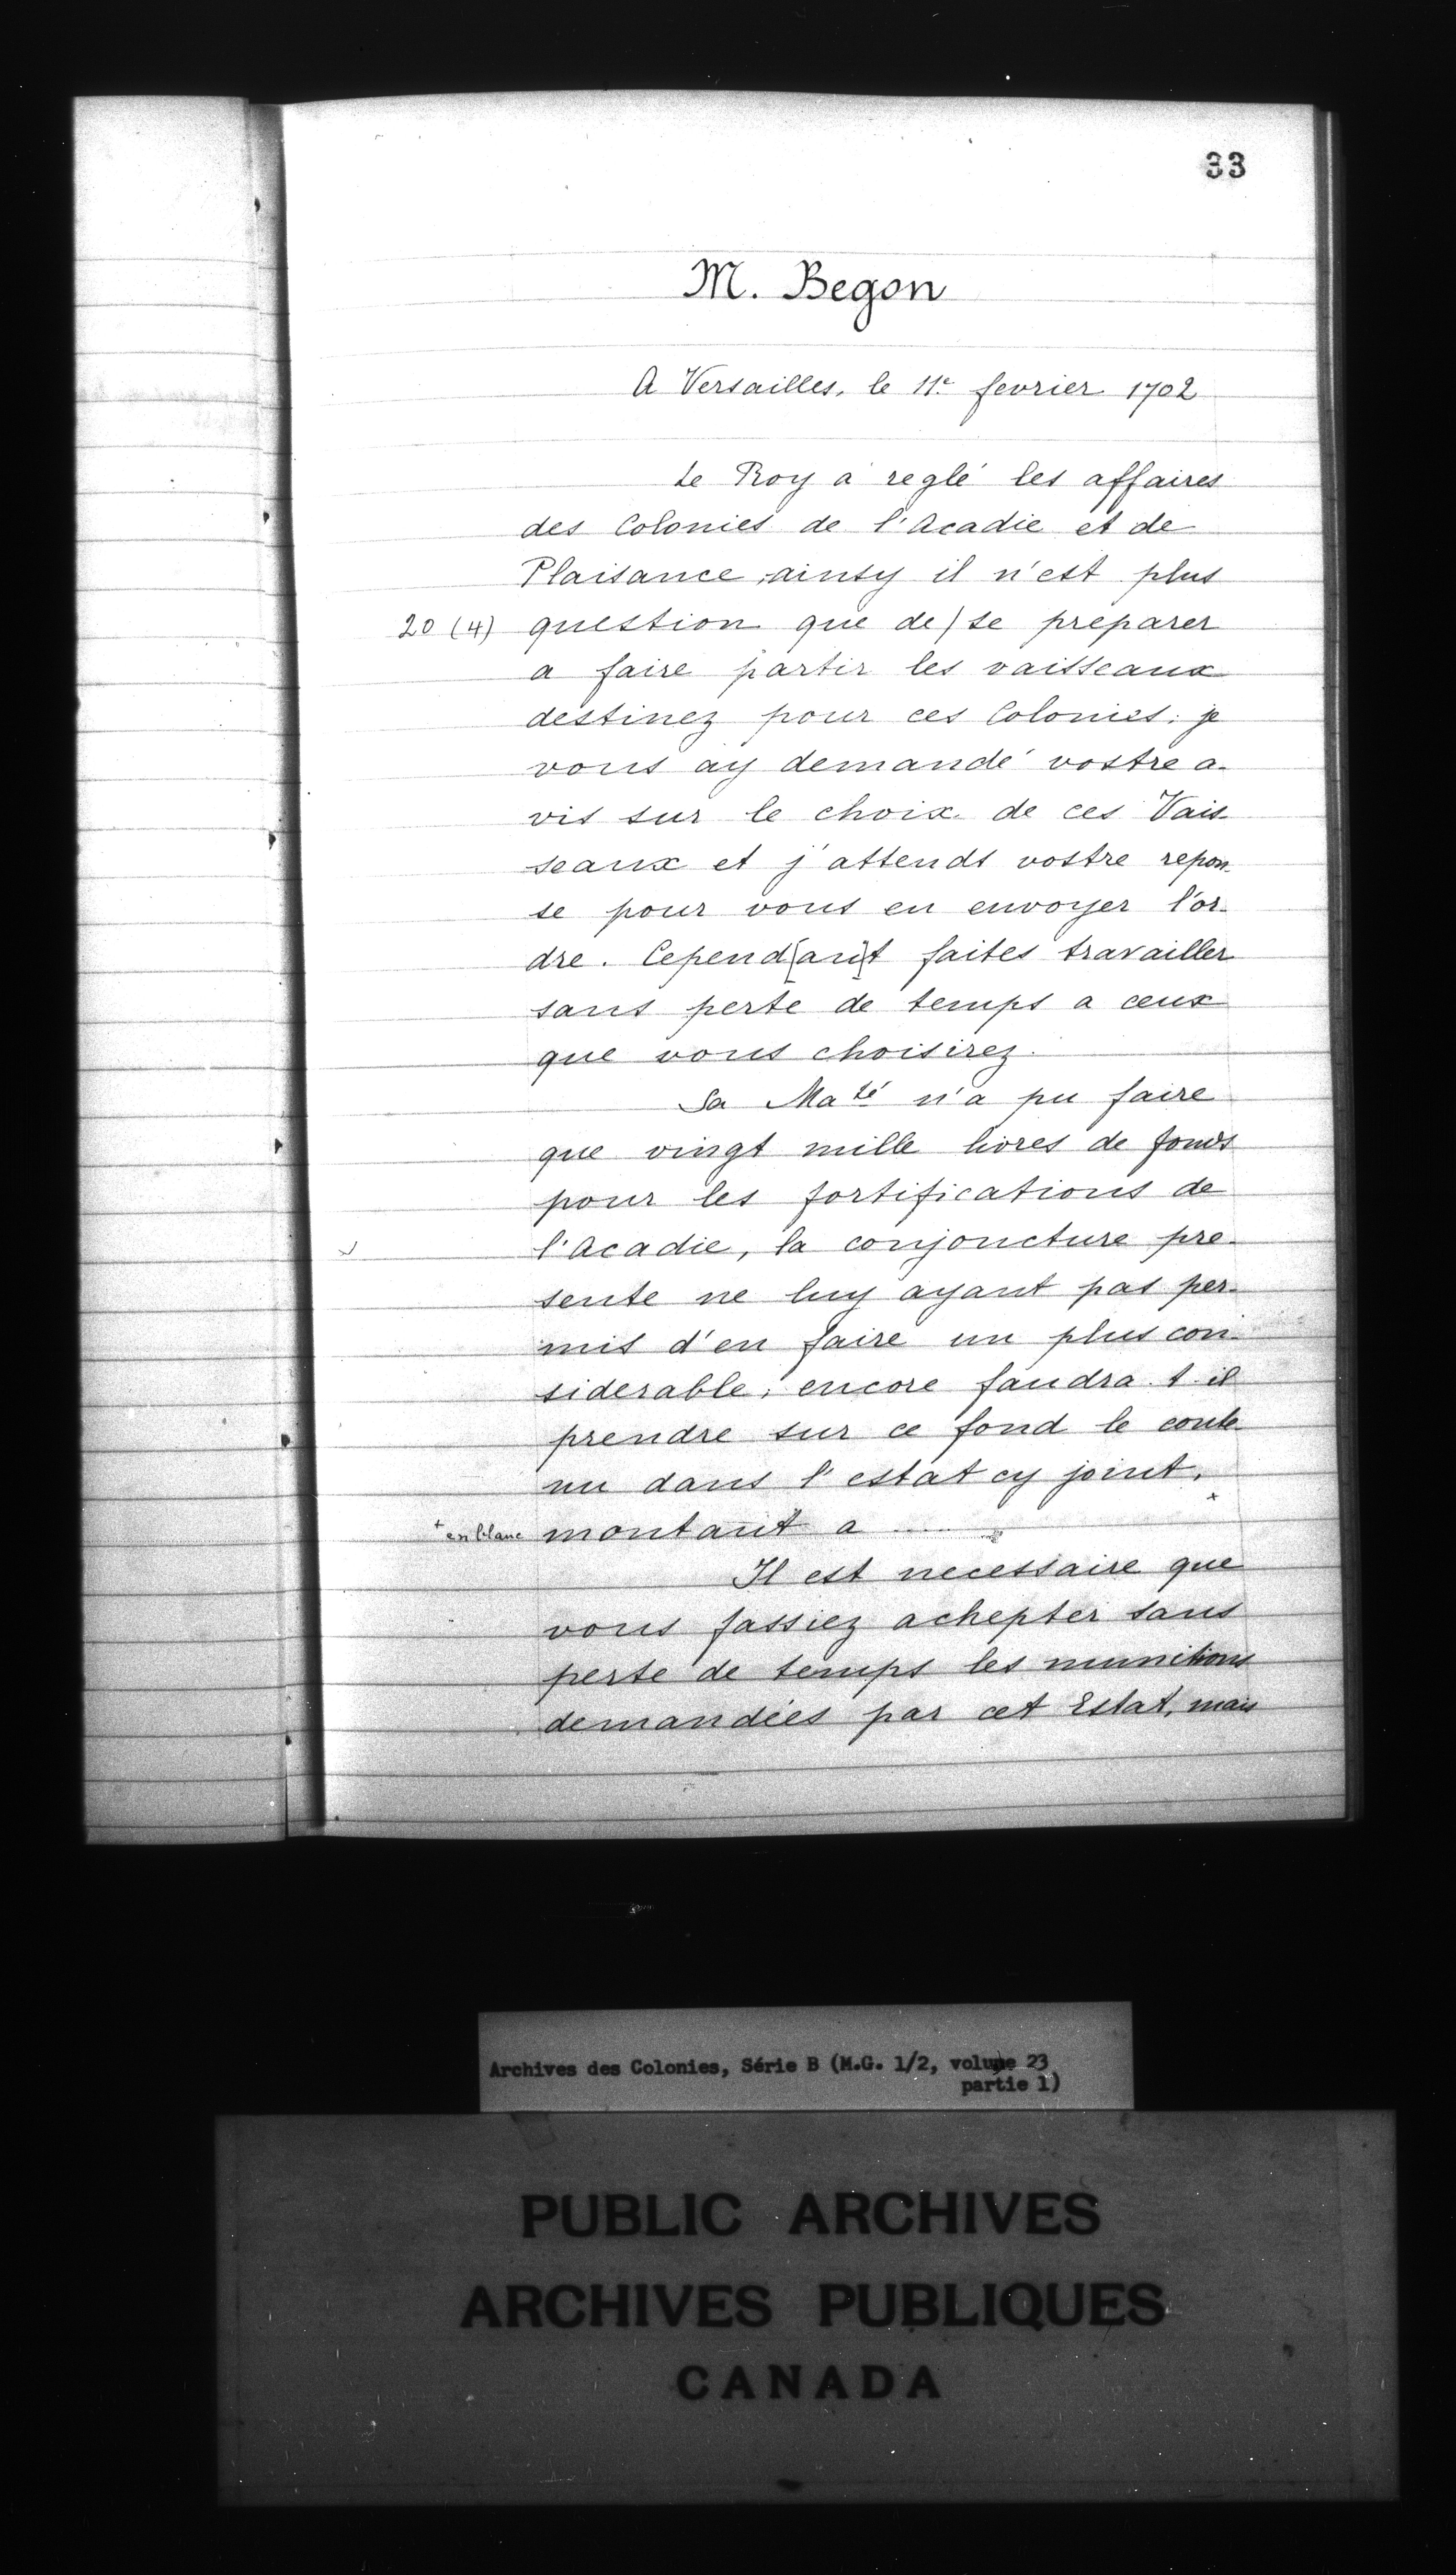 33
M. Begon
A Versailles, le 11e fevrier 1702
Le Roy a reglé les affaires
des Colonies de l'Acadie et de
Plaisance, ainsy il n'est plus
20 (4) question que de/se preparer
a faire partir les vaisseaux
destinez pour ces Colonies; je
vous ay demandé vostre a-
vis sur le choix de ces Vais-
seaux et j'attends vostre repon-
se pour vous en envoyer l'or-
dre. Cepend[an]t faites travailler
sans perte de temps a ceux
que vous choisirez.
Sa Maté n'a pu faire
que vingt mille livres de fonds
pour les fortifications de
l'Acadie, la conjoncture pre-
sente ne luy ayant pas per-
mis d'en faire un plus con-
siderable; encore faudra-t-il
prendre sur ce fond le conte-
nu dans l'estat cy joint,
+ en blanc montant a ...... +
Il est necessaire que
vous fassiez achepter sans
perte de temps les munitions
demandées par cet Estat, mais
Archives des Colonies, Série B (M.G. 1/2, volume 23
partie 1)
PUBLIC ARCHIVES
ARCHIVES PUBLIQUES
CANADA